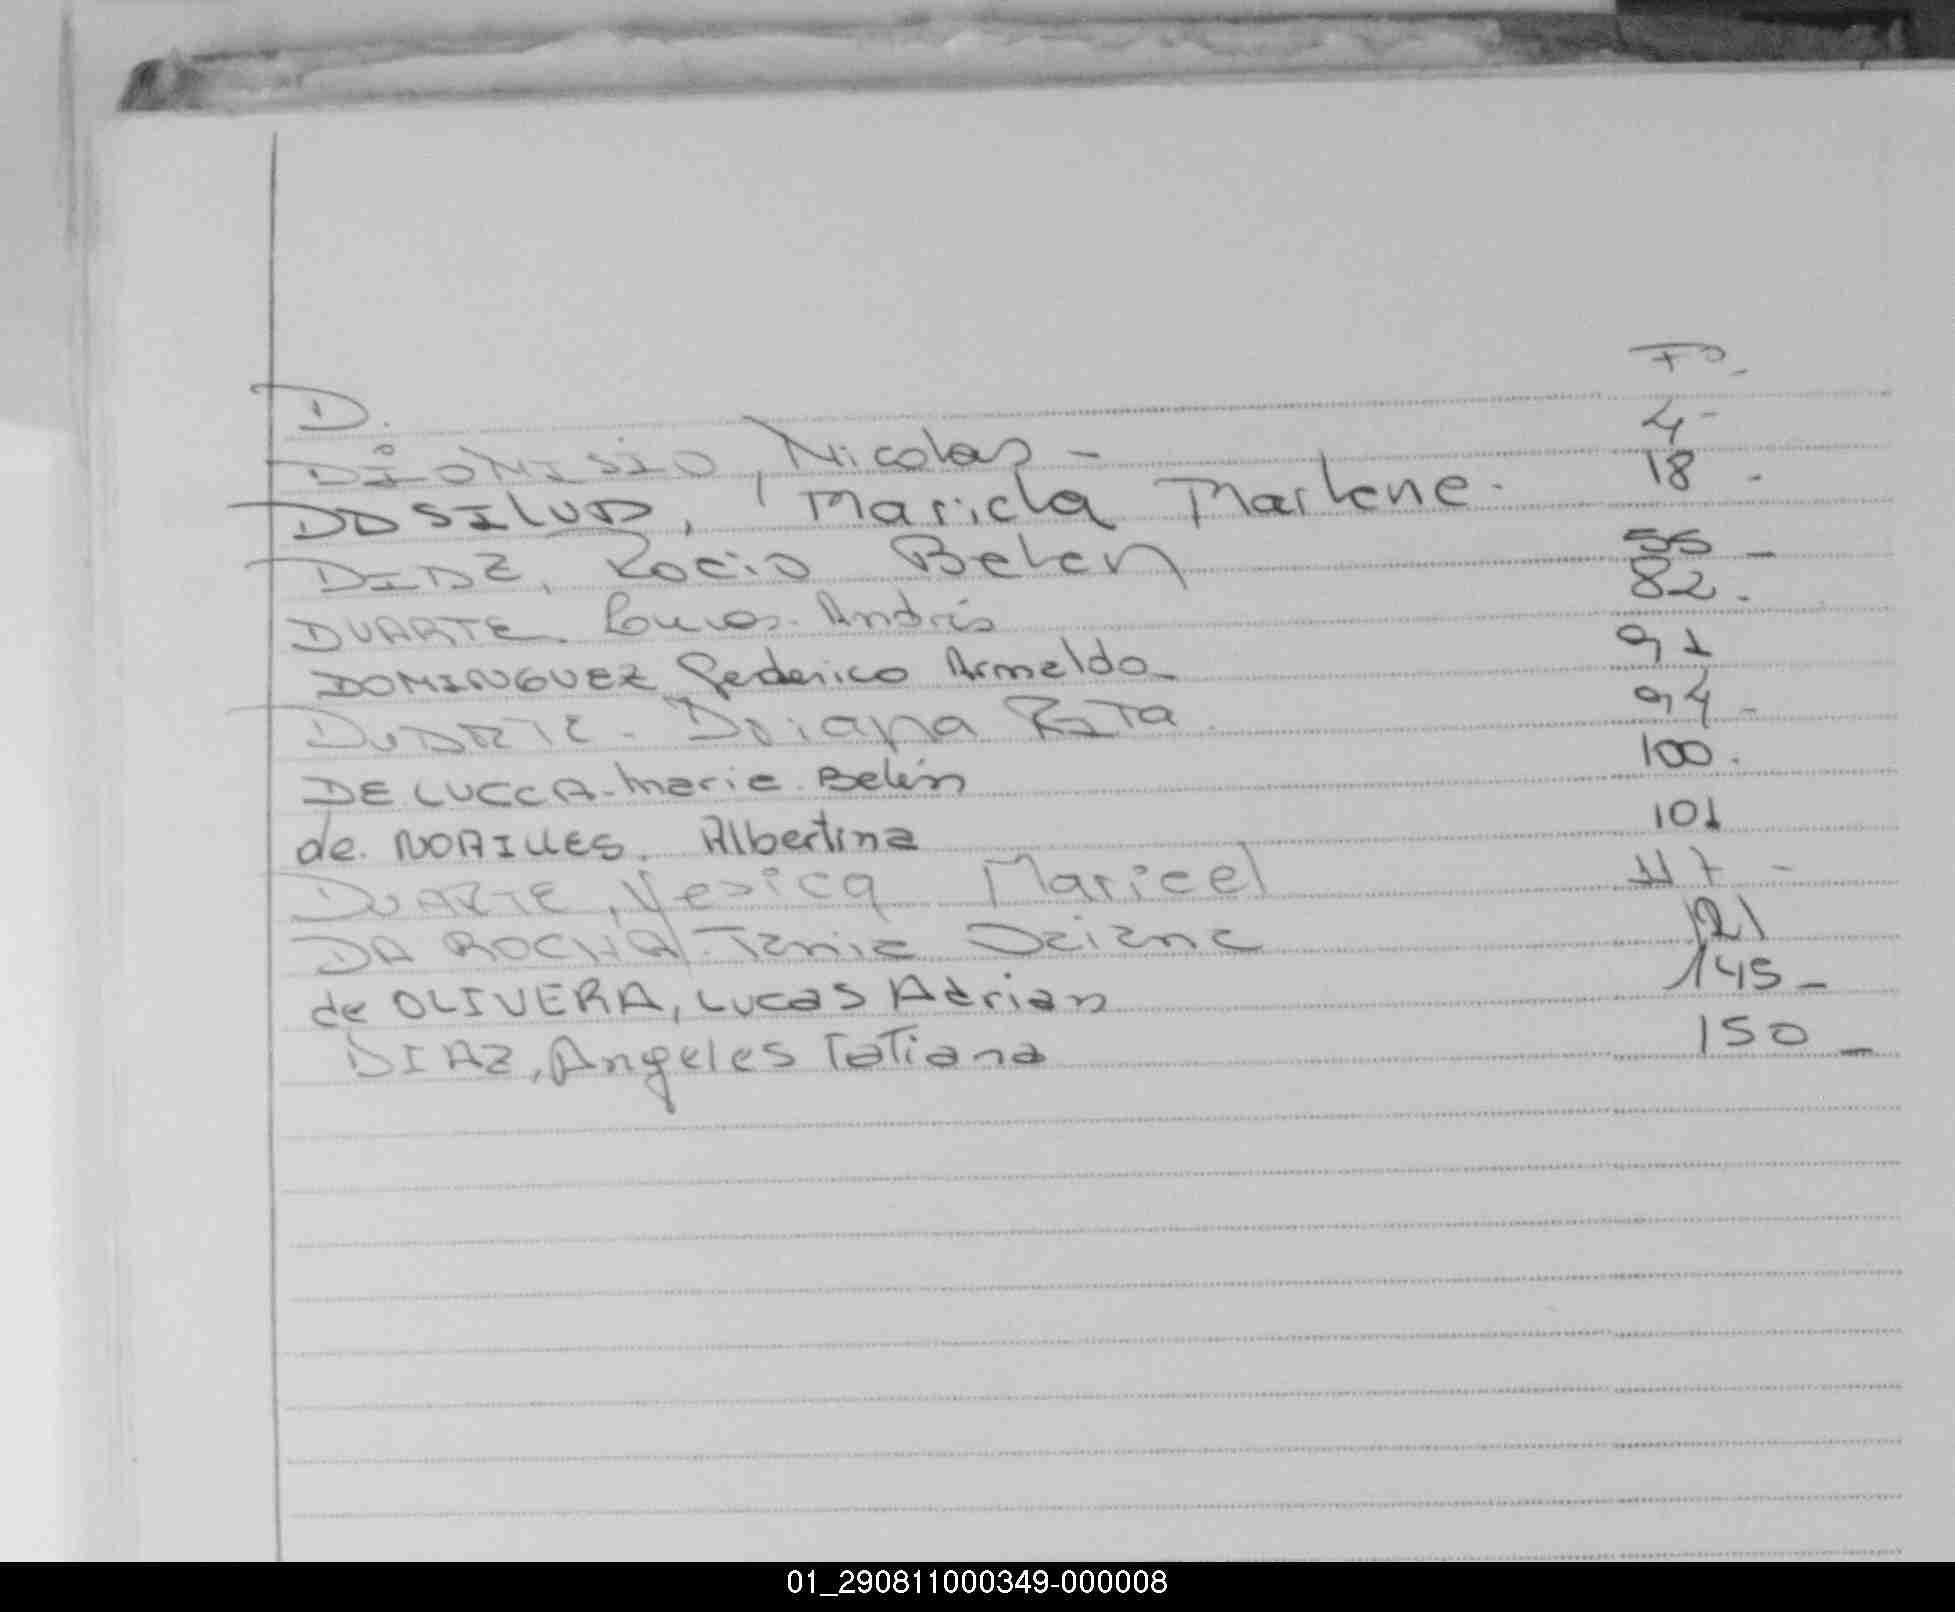 D. Fº.
DIONISIO, Nicolas - 4-
DA SILVA, Maricla Marlene. 18.
DIAZ, Rocio Belen 55-
DUARTE. Lucas Andrés 82.
DOMINGUEZ Federico Arnaldo- 91
DUARTE. Daiana Rita. 94-
DE LUCCA-Maria Belén 100.
de NOAILLES. Albertina 101
DUARTE, Yesica Maricel 117-
DA ROCHA. Tania Daiana 121
de OLIVERA, Lucas Adrian 145-
DIAZ, Angeles Tatiana 150-
01_290811000349-000008